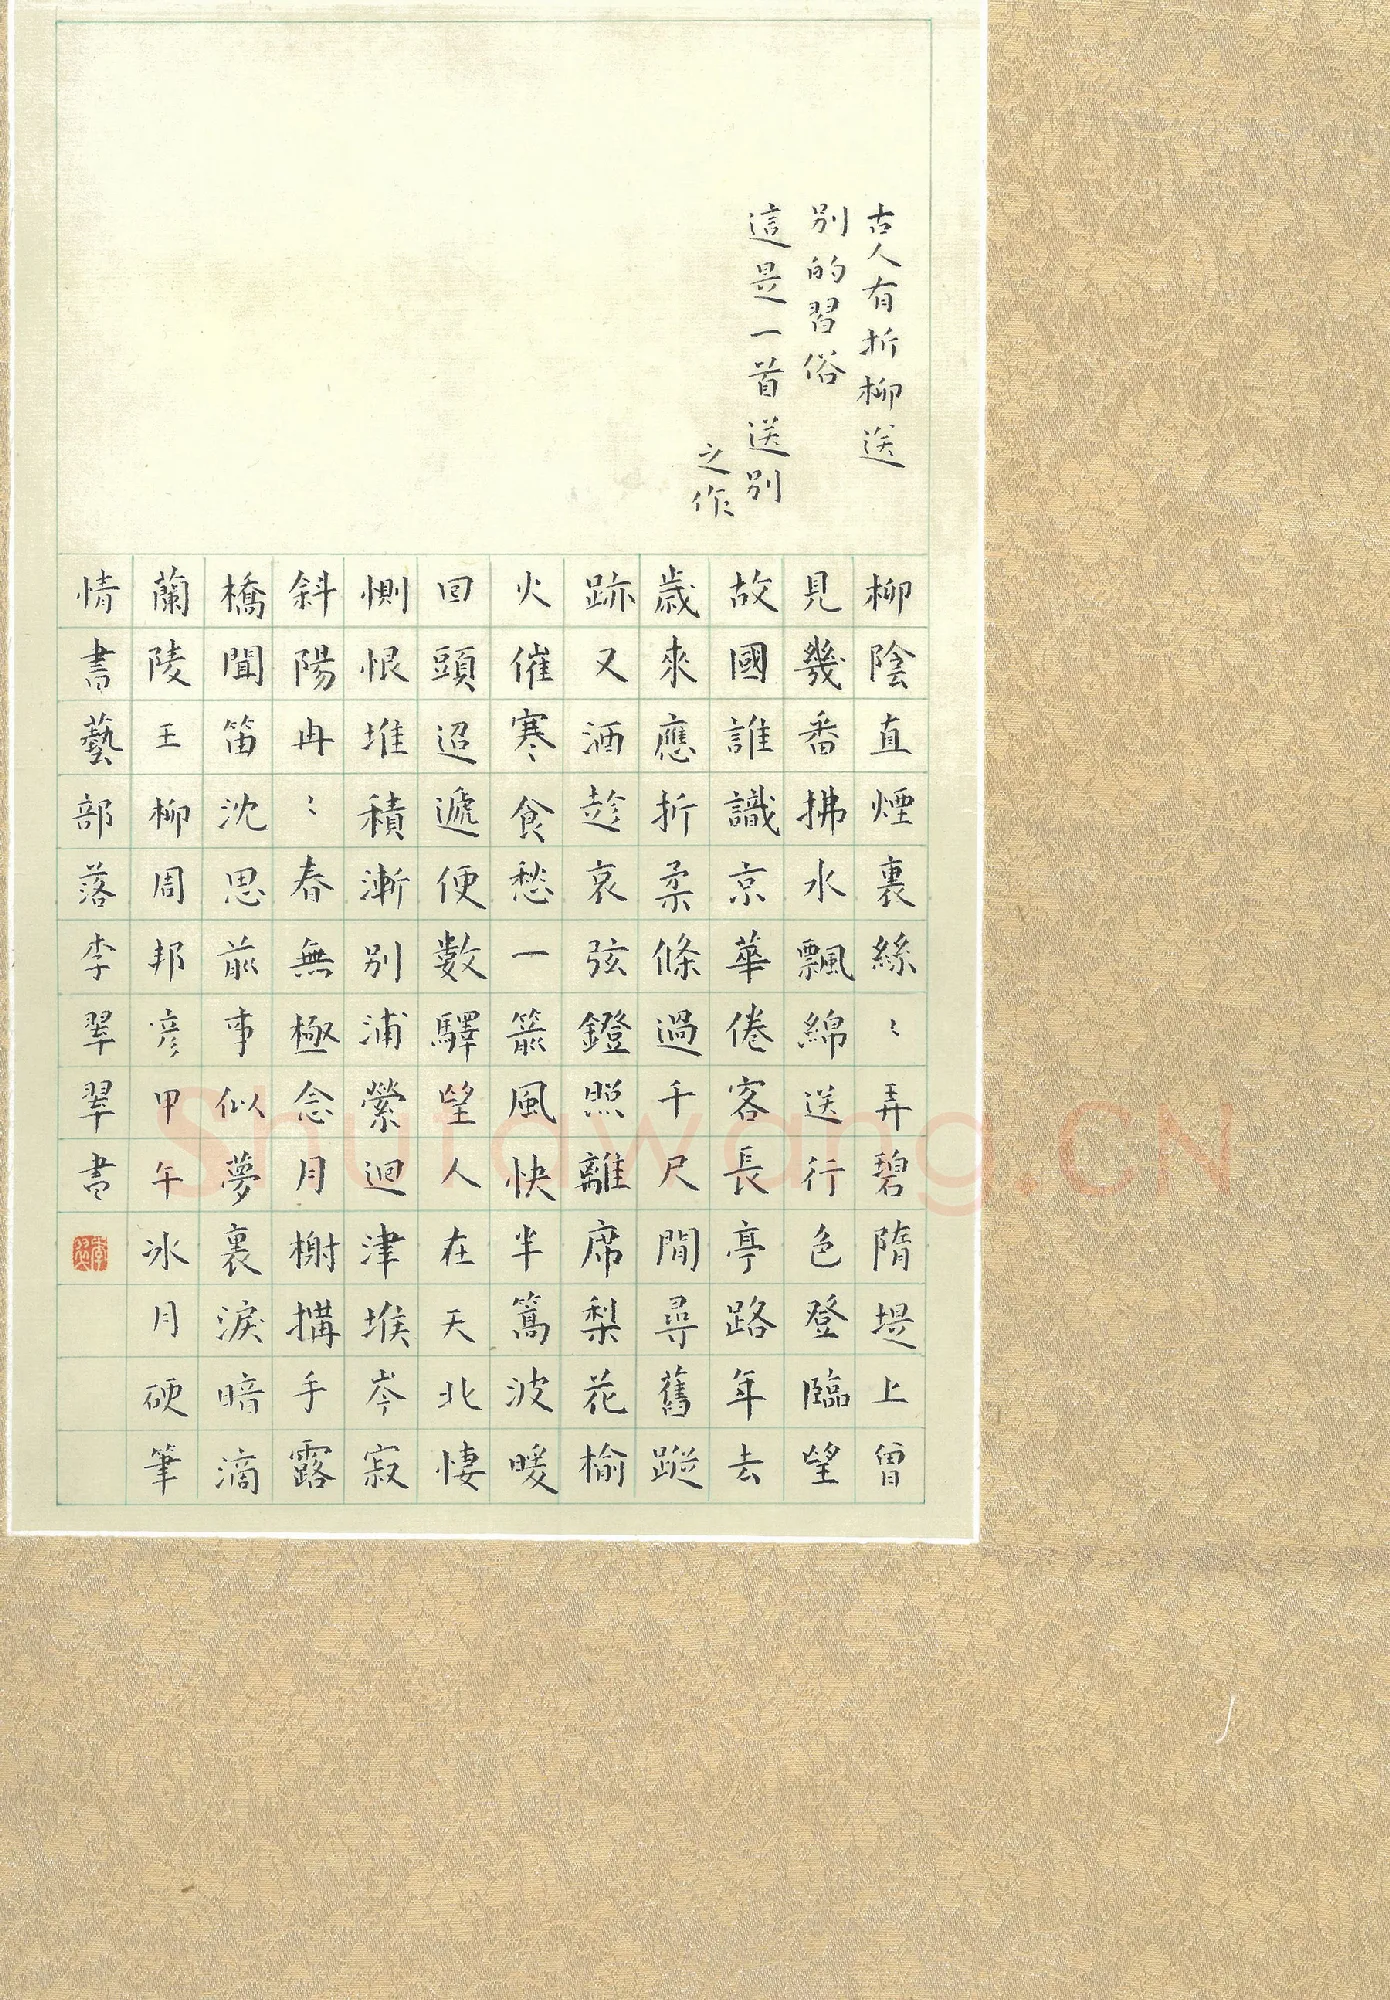 古人有折柳送
別的習俗
這是一首送別
之作
柳陰直煙裏絲〻弄碧隋堤上曾
見幾番拂水飄綿送行色登臨望
故國誰識京華倦客長亭路年去
歲來應折柔條過千尺閒尋舊蹤
跡又酒趁哀弦鐙照離席梨花榆
火催寒食愁一箭風快半篙波暖
回頭迢遞便數驛望人在天北悽
惻恨堆積漸別浦縈迴津堠岑寂
斜陽冉〻春無極念月榭攜手露
橋聞笛沈思前事似夢裏淚暗滴
蘭陵王柳周邦彥甲午冰月硬筆
情書藝部落李翠翠書
Shufawang.CN